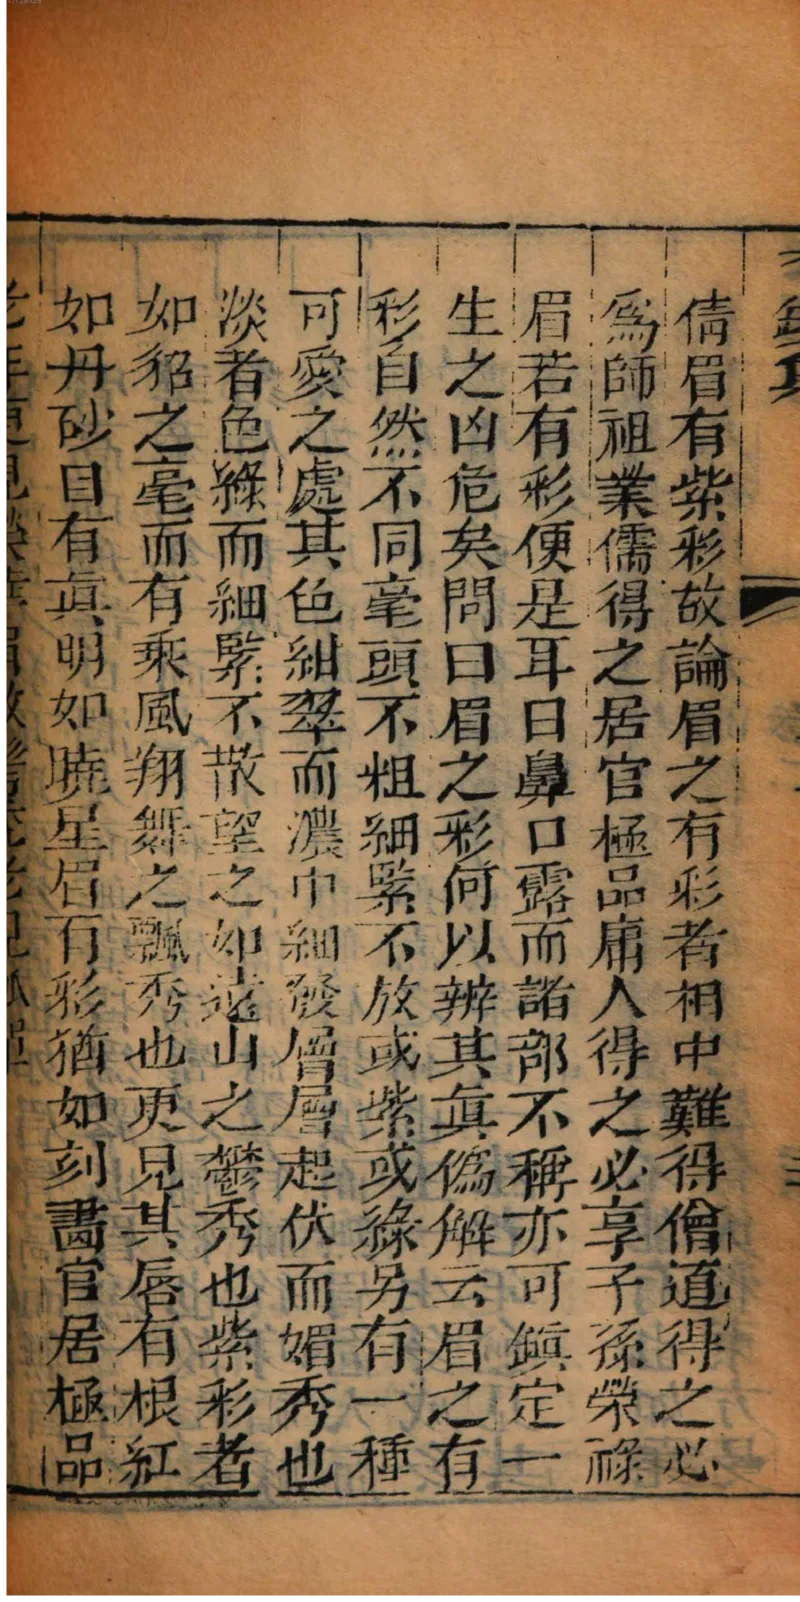 倩眉有紫彩故論眉之有彩者相中難得僧道得之必
為師祖業儒得之居官極品庸人得之必享子孫榮祿
眉若有彩便是耳目鼻口露而諸部不稱亦可鎮定一
生之凶危矣問曰眉之彩何以辨其眞僞解云眉之有
彩自然不同毫頭不粗細緊不放或紫或綠另有一種
可愛之處其色紺翠而濃中細發層層起伏而媚秀也
淡者色綠而細緊不散望之如遠山之鬱秀也紫彩者
如貂之毫而有乘風翔舞之飄秀也更見其唇有根紅
如丹砂目有眞明如曉星眉有彩猶如刻畵官居極品